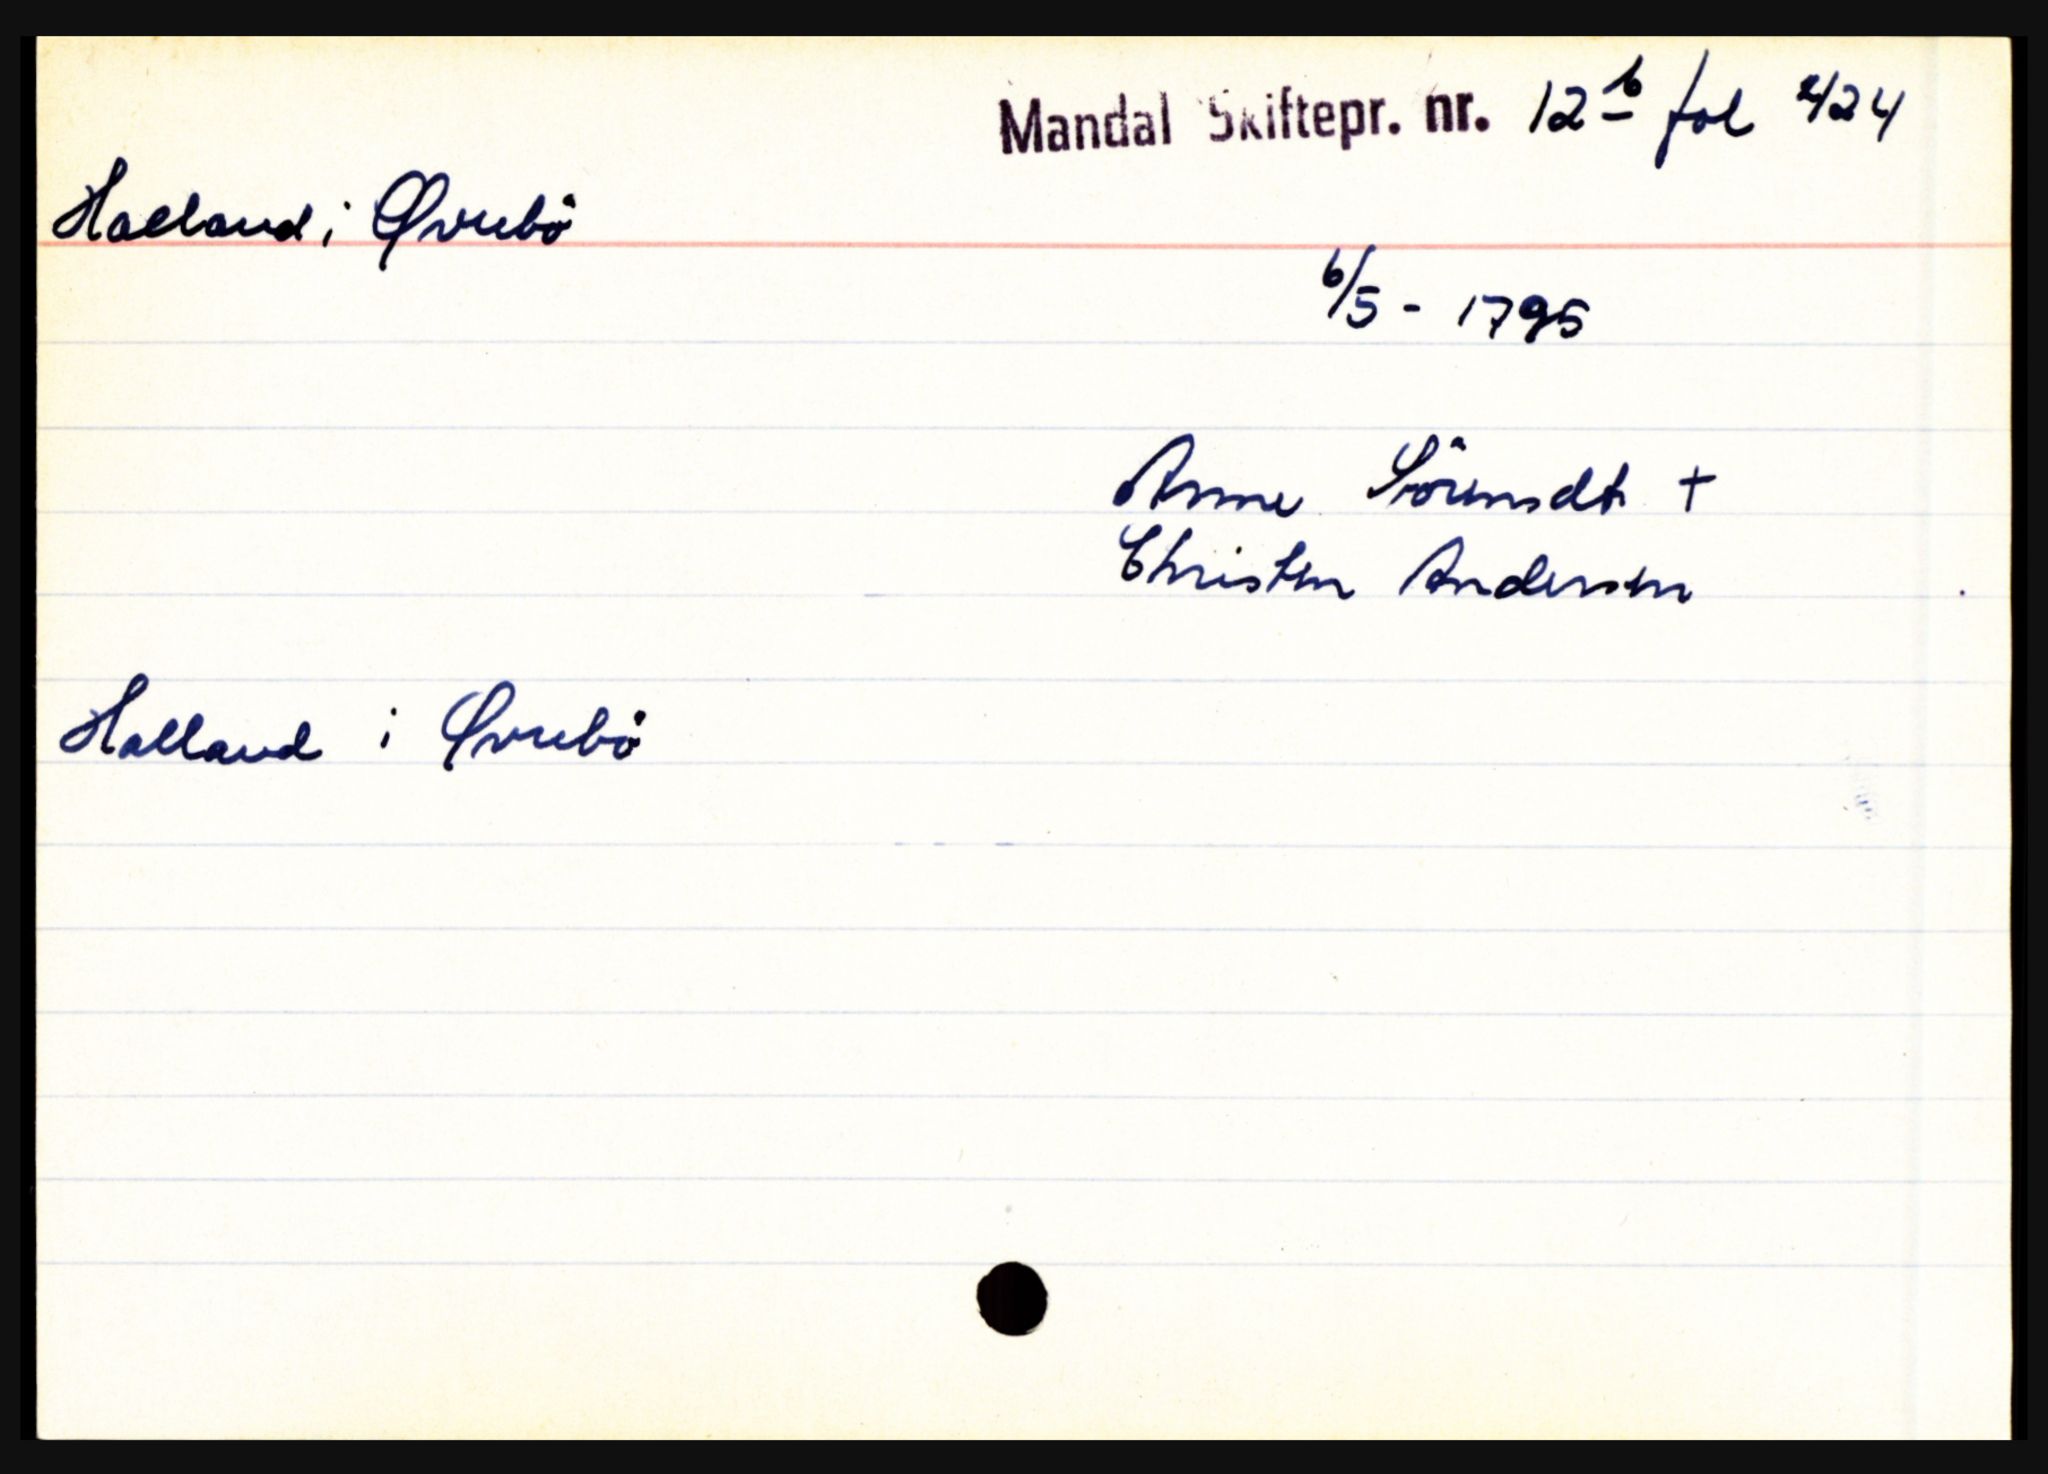 Mandal Skiftepr. nr. 12 b fol 424
Halland i Øvrebö
6/5 - 1795
Anne Sörensdt +
Christen Andersen
Halland i Øvrebö